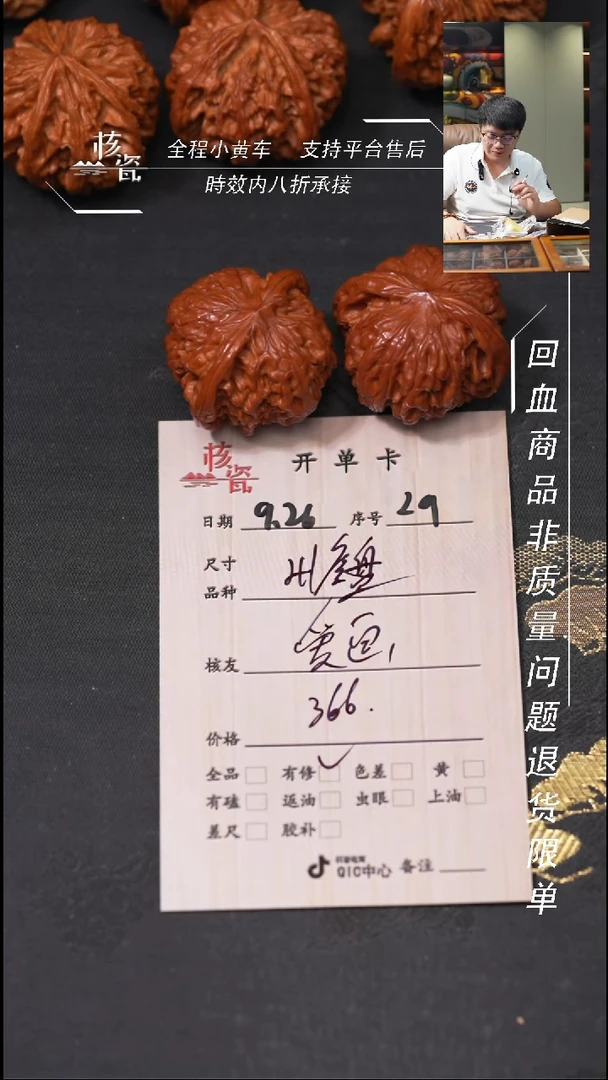 核瓷
全程小黄车 支持平台售后
時效内八折承接
回血商品非质量问题退货限单
核瓷
开单卡
日期 9.26 序号 29
尺寸
品种 盘
核友
366.
价格
全品 有修 色差 黄
有磕 返油 虫眼 上油
差尺 胶补
抖音电商
QIC中心 备注